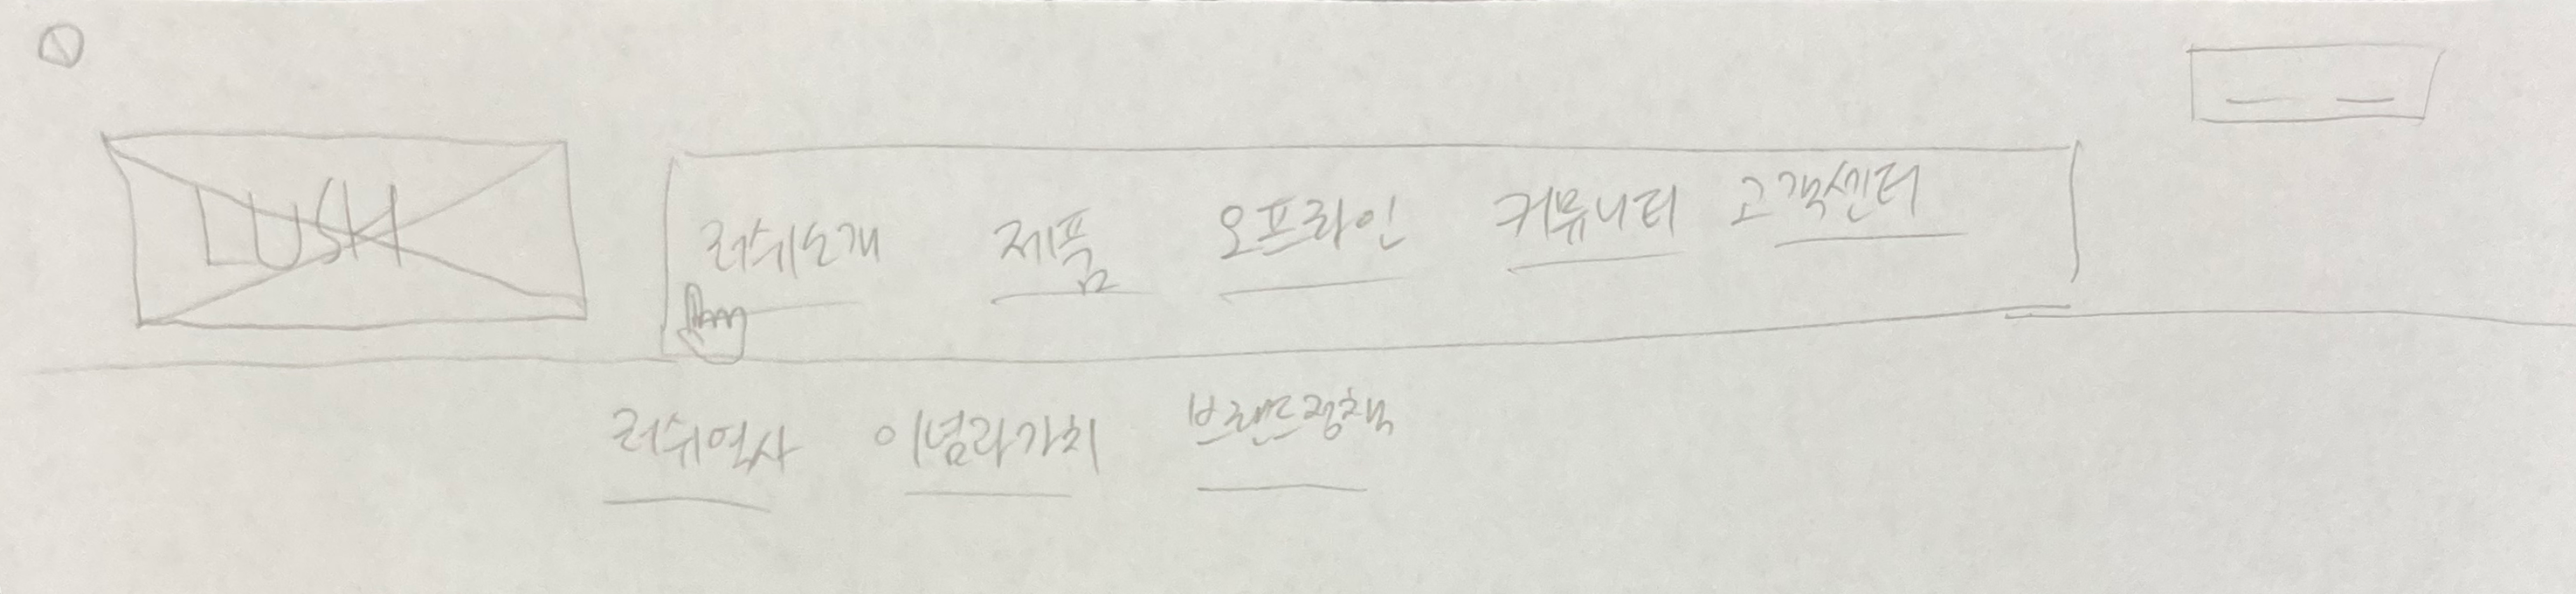 LUSH
러쉬소개 제품 오프라인 커뮤니티 고객센터
러쉬역사 이념과가치 브랜드정책